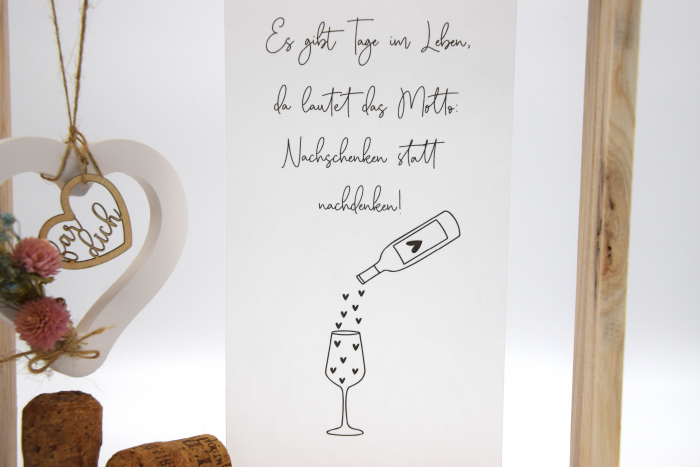 Es gibt Tage im Leben,
da lautet das Motto:
Nachschenken statt
nachdenken!
dich